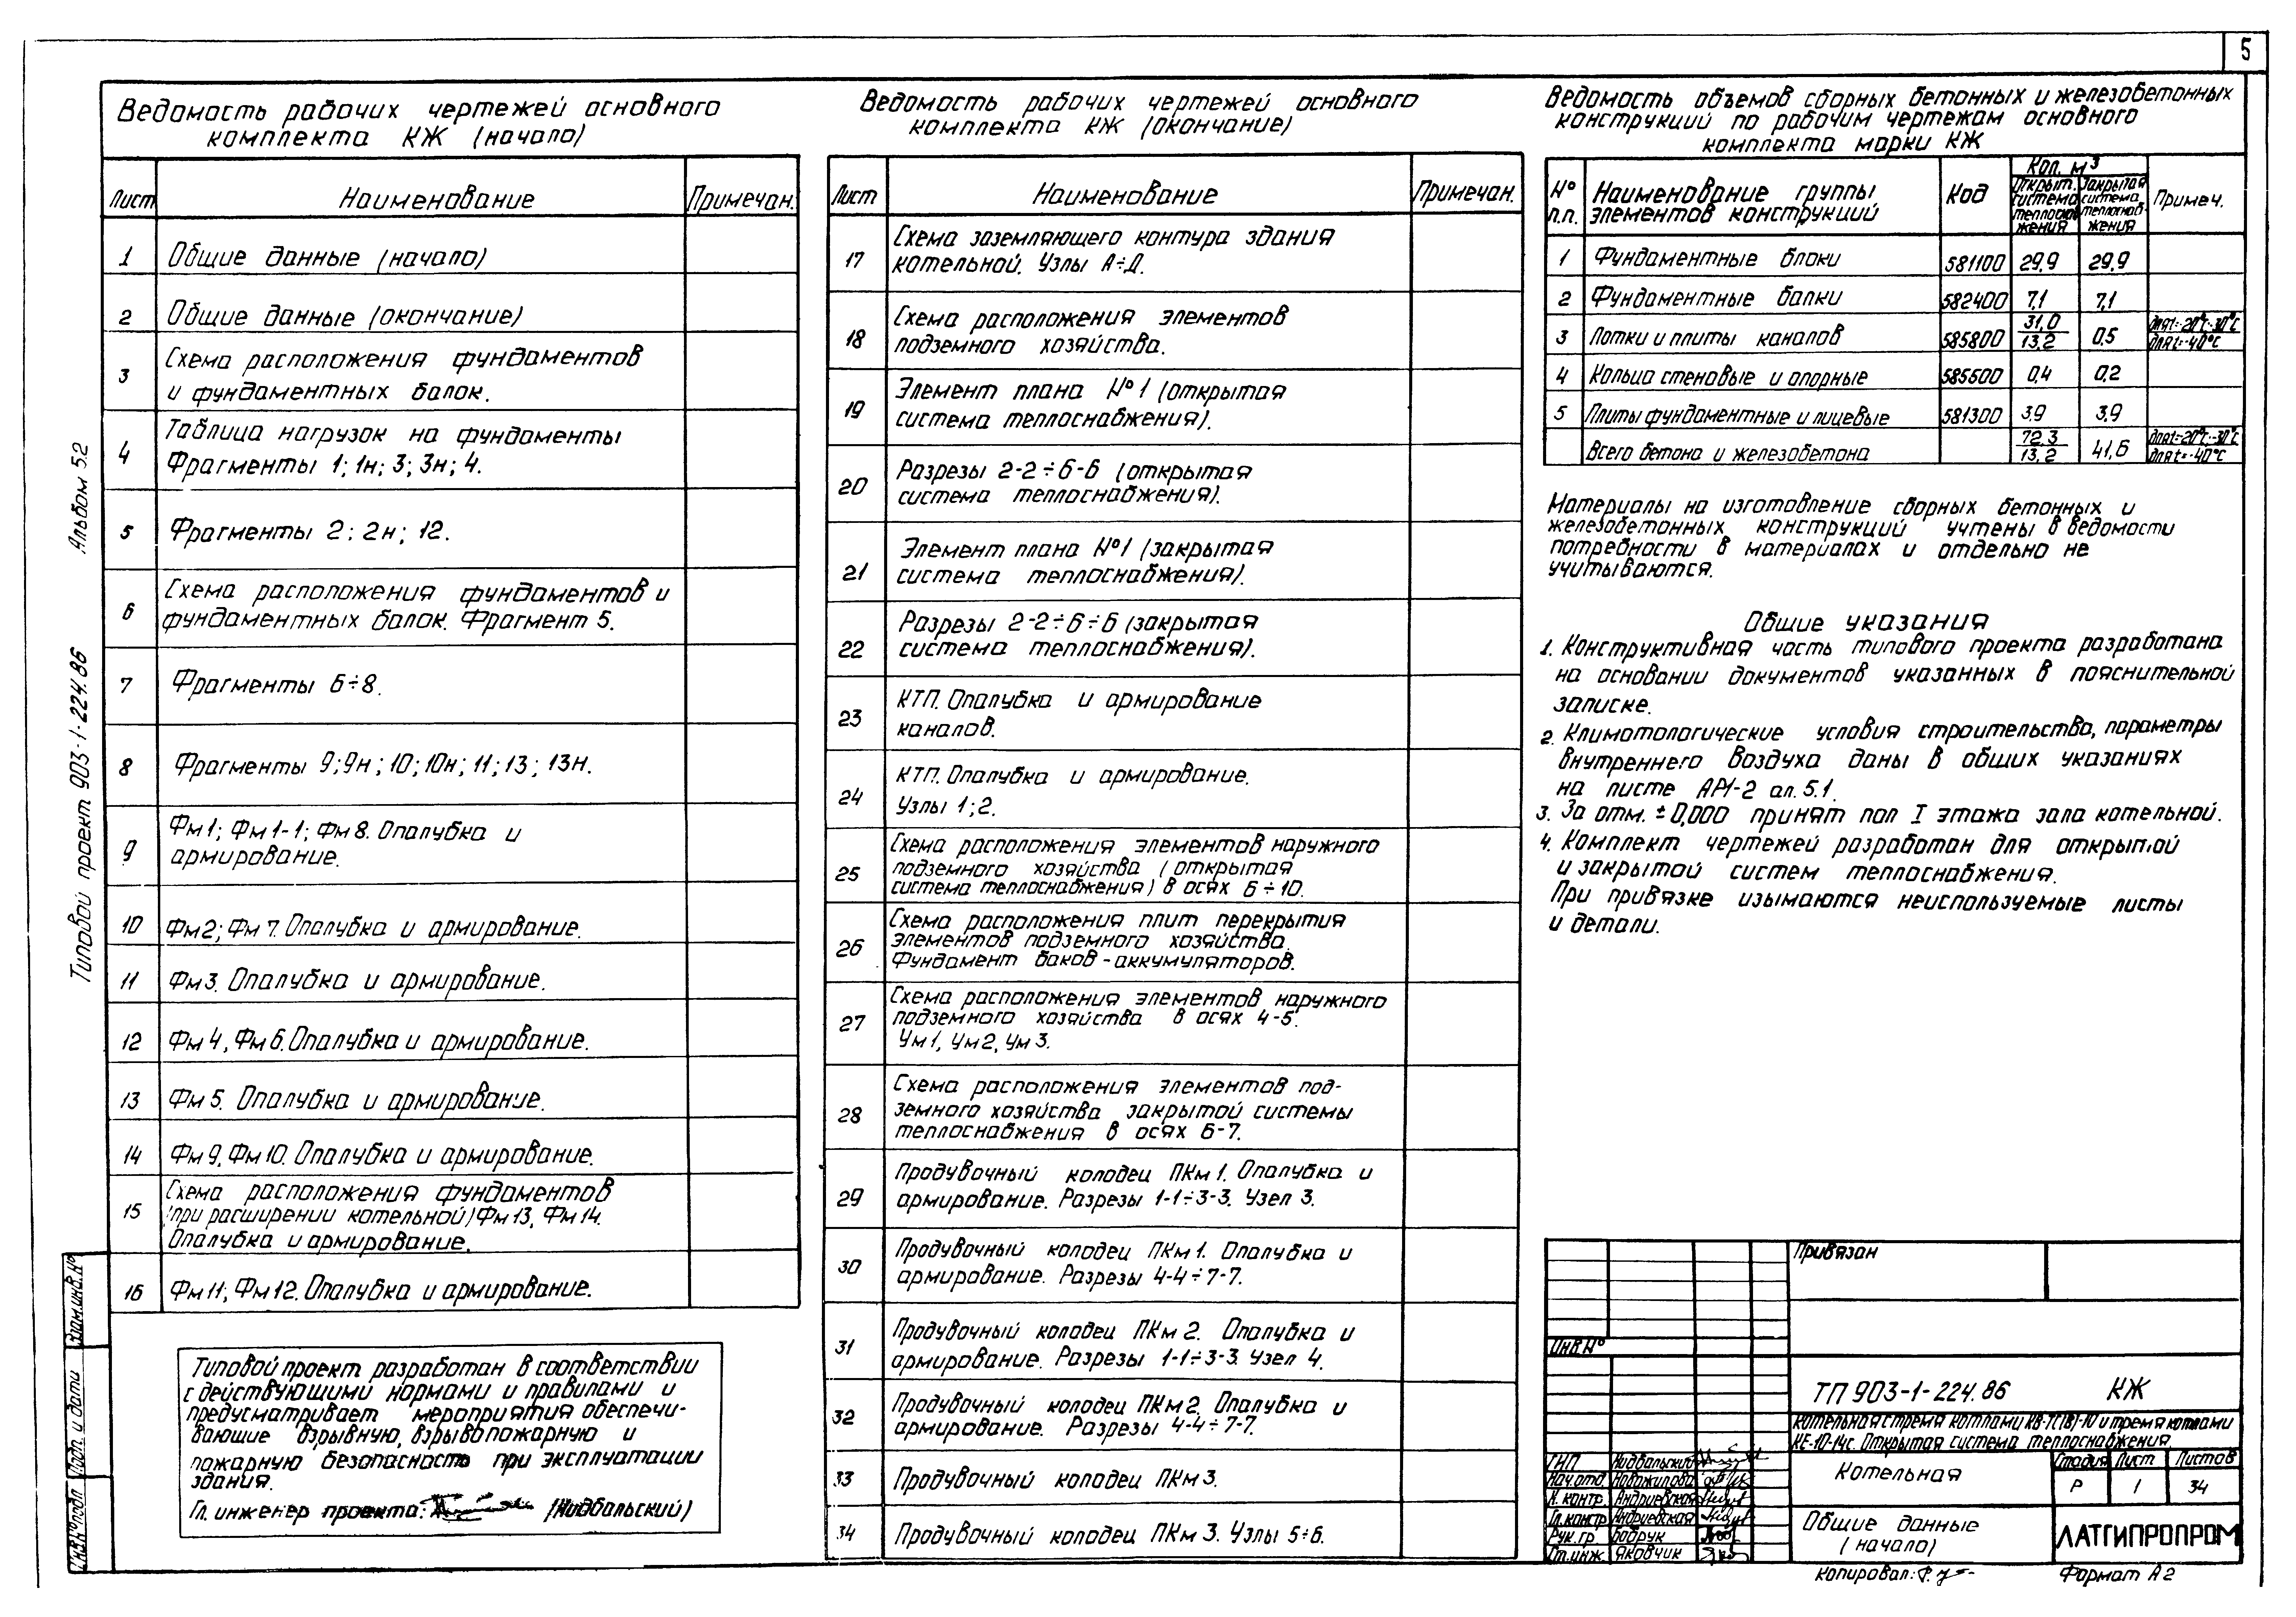 5
Альбом 5.2
Типовой проект 903-1-224.86
Взам.инв.Nº
Подп. и дата
Инв.Nº подл
Ведомость рабочих чертежей основного
комплекта КЖ (начало)
Лист Наименование Примечан.
1 Общие данные (начало)
2 Общие данные (окончание)
Схема расположения фундаментов
3
и фундаментных балок.
Таблица нагрузок на фундаменты
4
Фрагменты 1; 1н; 3; 3н; 4.
5 Фрагменты 2; 2н; 12.
Схема расположения фундаментов и
6
фундаментных балок. Фрагмент 5.
7 Фрагменты 6÷8.
8 Фрагменты 9; 9н; 10; 10н; 11; 13; 13н.
Фм1; Фм1-1; Фм8. Опалубка и
9
армирование.
10 Фм2; Фм7. Опалубка и армирование.
11 Фм3. Опалубка и армирование.
12 Фм4, Фм6. Опалубка и армирование.
13 Фм5. Опалубка и армирование.
14 Фм9, Фм10. Опалубка и армирование.
Схема расположения фундаментов
15 (при расширении котельной) Фм13, Фм14.
Опалубка и армирование.
16 Фм11; Фм12. Опалубка и армирование.
Типовой проект разработан в соответствии
с действующими нормами и правилами и
предусматривает мероприятия обеспечи-
вающие взрывную, взрывопожарную и
пожарную безопасность при эксплуатации
здания.
Гл. инженер проекта: (Нидбальский)
Ведомость рабочих чертежей основного
комплекта КЖ (окончание)
Лист Наименование Примечан.
Схема заземляющего контура здания
17
котельной. Узлы А÷Д.
Схема расположения элементов
18
подземного хозяйства.
Элемент плана Nº1 (открытая
19
система теплоснабжения).
Разрезы 2-2÷6-6 (открытая
20
система теплоснабжения).
Элемент плана Nº1 (закрытая
21
система теплоснабжения).
Разрезы 2-2÷6÷6 (закрытая
22
система теплоснабжения).
КТП. Опалубка и армирование
23
каналов.
КТП. Опалубка и армирование.
24
Узлы 1; 2.
Схема расположения элементов наружного
25 подземного хозяйства (открытая
система теплоснабжения) в осях 6÷10.
Схема расположения плит перекрытия
26 элементов подземного хозяйства.
Фундамент баков-аккумуляторов.
Схема расположения элементов наружного
27 подземного хозяйства в осях 4-5.
Ум1, Ум2, Ум3.
Схема расположения элементов под-
28 земного хозяйства закрытой системы
теплоснабжения в осях 6-7.
Продувочный колодец ПКм1. Опалубка и
29
армирование. Разрезы 1-1÷3-3. Узел 3.
Продувочный колодец ПКм1. Опалубка и
30
армирование. Разрезы 4-4÷7-7.
Продувочный колодец ПКм2. Опалубка и
31
армирование. Разрезы 1-1÷3-3. Узел 4.
Продувочный колодец ПКм2. Опалубка и
32
армирование. Разрезы 4-4÷7-7.
33 Продувочный колодец ПКм3.
34 Продувочный колодец ПКм3. Узлы 5÷6.
Ведомость объемов сборных бетонных и железобетонных
конструкций по рабочим чертежам основного
комплекта марки КЖ
Nº п.п. Наименование группы элементов конструкций Код Кол. м³ Примеч.
Открыт. система теплоснабжения Закрытая система теплоснабжения
1 Фундаментные блоки 581100 29,9 29,9
2 Фундаментные балки 582400 7,1 7,1
3 Лотки и плиты каналов 585800 31,0 / 13,2 0,5 для t=-20°С;-30°С / для t=-40°С
4 Кольца стеновые и опорные 585500 0,4 0,2
5 Плиты фундаментные и лицевые 581300 3,9 3,9
Всего бетона и железобетона 72,3 / 13,2 41,6 для t=-20°С;-30°С / для t=-40°С
Материалы на изготовление сборных бетонных и
железобетонных конструкций учтены в ведомости
потребности в материалах и отдельно не
учитываются.
Общие указания
1. Конструктивная часть типового проекта разработана
на основании документов указанных в пояснительной
записке.
2. Климатологические условия строительства, параметры
внутреннего воздуха даны в общих указаниях
на листе АР1-2 ал. 5.1.
3. За отм. ±0,000 принят пол I этажа зала котельной.
4. Комплект чертежей разработан для открытой
и закрытой систем теплоснабжения.
При привязке изымаются неиспользуемые листы
и детали.
Привязан
Инв.Nº
ТП 903-1-224.86 КЖ
Котельная с тремя котлами КВ-ТС(В)-10 и тремя котлами
КЕ-10-14с. Открытая система теплоснабжения
ГИП Нидбальский
Нач.отд. Новожилова
Н.контр. Андриевская
Гл.констр Андриевская
Рук.гр. Бобрук
Ст.инж. Яковчик
Котельная
Стадия Лист Листов
Р 1 34
Общие данные
(начало)
ЛАТГИПРОПРОМ
Копировал:
Формат А2